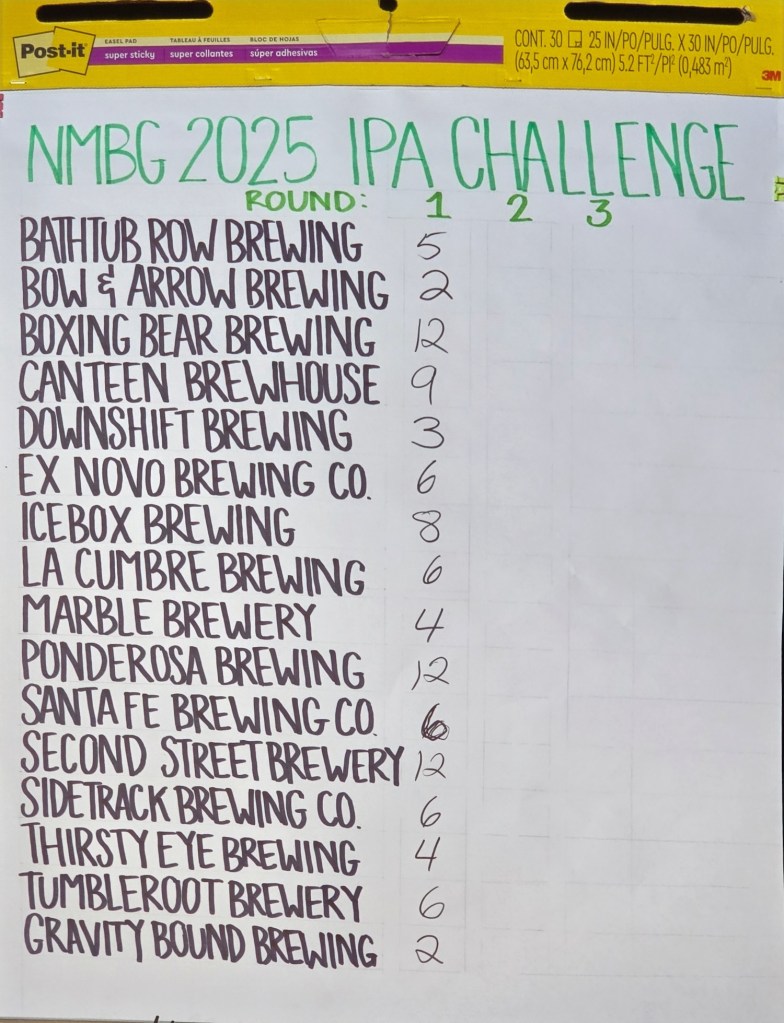 Post-it
EASEL PAD TABLEAU À FEUILLES BLOC DE HOJAS
super sticky super collantes súper adhesivas
CONT. 30 25 IN/PO/PULG. X 30 IN/PO/PULG.
(63,5 cm x 76,2 cm) 5.2 FT²/PI² (0,483 m²)
3M
NMBG 2025 IPA CHALLENGE
ROUND: 1 2 3
BATHTUB ROW BREWING 5
BOW & ARROW BREWING 2
BOXING BEAR BREWING 12
CANTEEN BREWHOUSE 9
DOWNSHIFT BREWING 3
EX NOVO BREWING CO. 6
ICEBOX BREWING 8
LA CUMBRE BREWING 6
MARBLE BREWERY 4
PONDEROSA BREWING 12
SANTA FE BREWING CO. 6
SECOND STREET BREWERY 12
SIDETRACK BREWING CO. 6
THIRSTY EYE BREWING 4
TUMBLEROOT BREWERY 6
GRAVITY BOUND BREWING 2